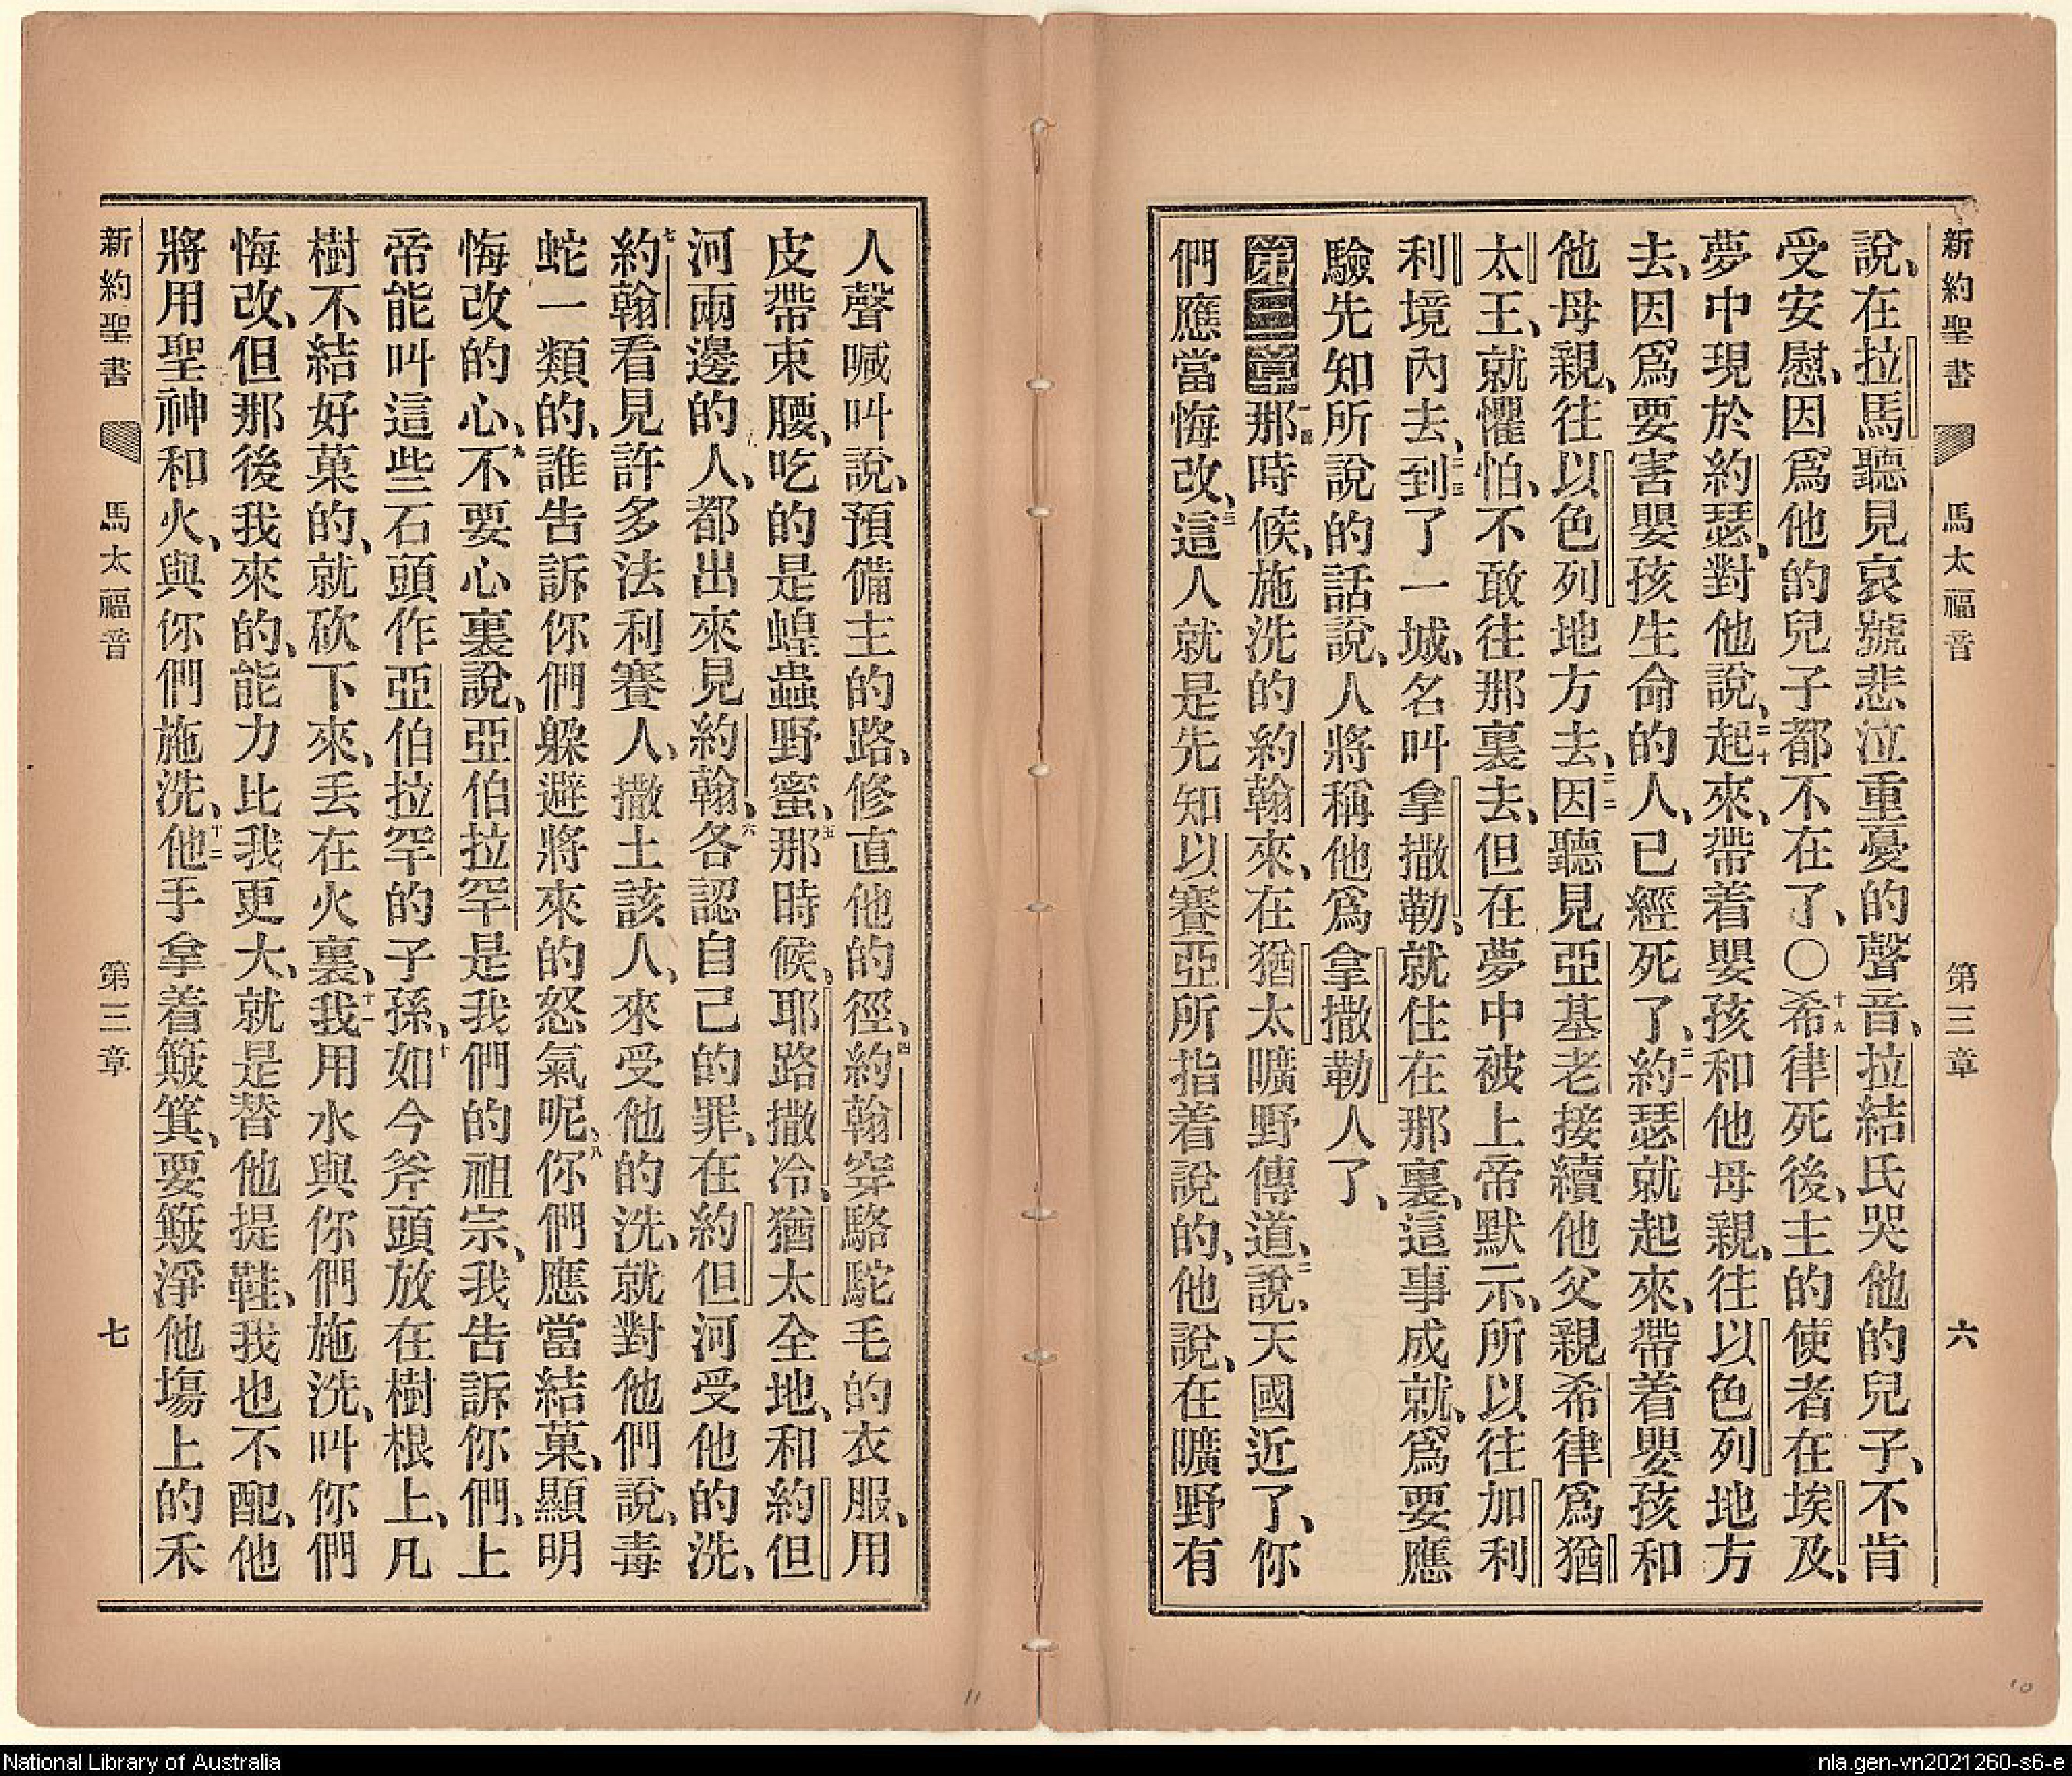 新約聖書 馬太福音 第三章 六
說、在拉馬聽見哀號悲泣重憂的聲音、拉結氏哭他的兒子、不肯
受安慰、因爲他的兒子都不在了、〇十九希律死後、主的使者在埃及、
夢中現於約瑟、對他說、二十起來、帶着嬰孩和他母親、往以色列地方
去、因爲要害嬰孩生命的人、已經死了、二一約瑟就起來、帶着嬰孩和
他母親、往以色列地方去、二二因聽見亞基老接續他父親希律爲猶
太王、就懼怕、不敢往那裏去、但在夢中被上帝默示、所以往加利
利境內去、二三到了一城、名叫拿撒勒、就住在那裏、這事成就、爲要應
驗先知所說的話說、人將稱他爲拿撒勒人了、
第三章一那時候、施洗的約翰來、在猶太曠野傳道、二說、天國近了、你
們應當悔改、三這人就是先知以賽亞所指着說的、他說、在曠野有
人聲喊叫說、預備主的路、修直他的徑、四約翰穿駱駝毛的衣服、用
皮帶束腰、吃的是蝗蟲野蜜、五那時候、耶路撒冷、猶太全地、和約但
河兩邊的人、都出來見約翰、六各認自己的罪、在約但河受他的洗、
七約翰看見許多法利賽人、撒土該人、來受他的洗、就對他們說、毒
蛇一類的、誰告訴你們躲避將來的怒氣呢、八你們應當結菓、顯明
悔改的心、九不要心裏說、亞伯拉罕是我們的祖宗、我告訴你們、上
帝能叫這些石頭作亞伯拉罕的子孫、十如今斧頭放在樹根上、凡
樹不結好菓的、就砍下來、丟在火裏、十一我用水與你們施洗、叫你們
悔改、但那後我來的、能力比我更大、就是替他提鞋、我也不配、他
將用聖神和火、與你們施洗、十二他手拿着簸箕、要簸淨他塲上的禾
新約聖書 馬太福音 第三章 七
11
10
National Library of Australia
nla.gen-vn2021260-s6-e